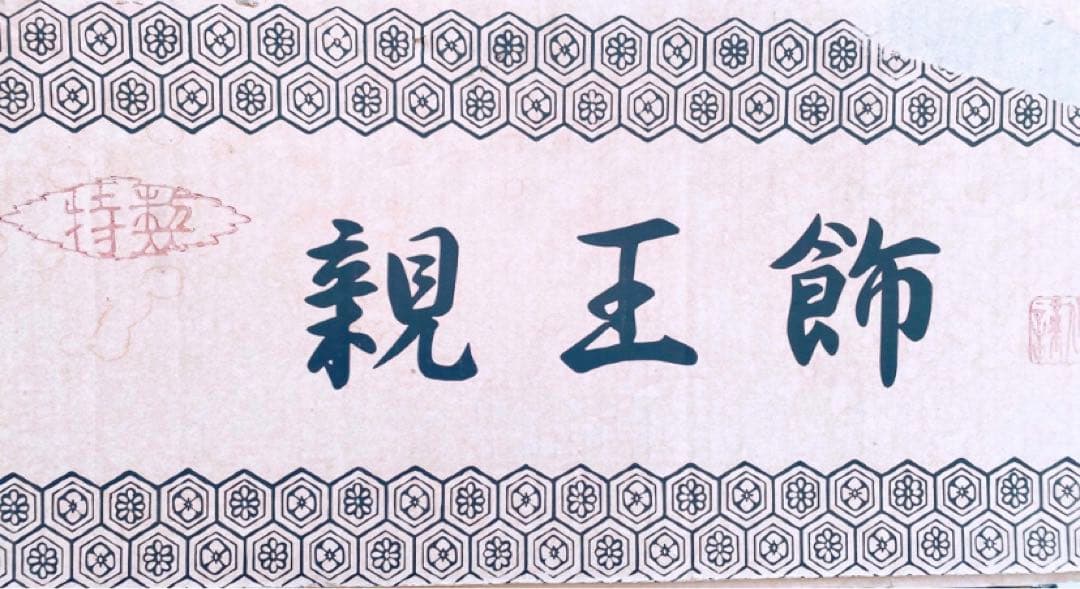 特製
親王飾